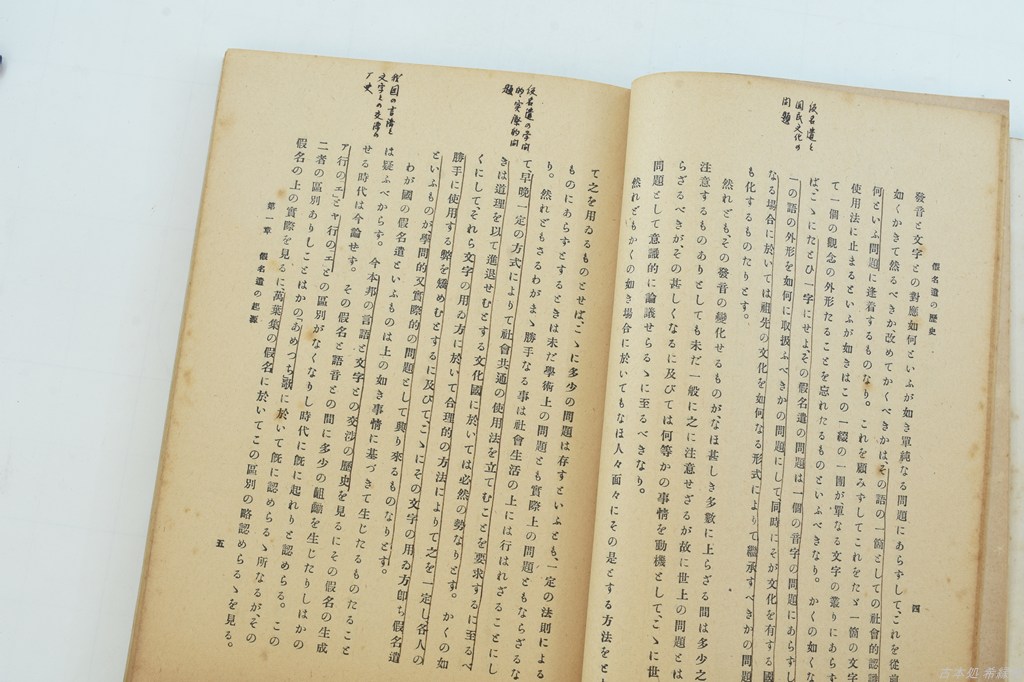 假名遣の歷史
四
仮名遣と
国民文化の
問題
發音と文字との對應如何といふが如き單純なる問題にあらずして、これを從前
如くかきて然るべきか改めてかくべきかは、その語の一箇としての社會的認識
何といふ問題に逢着するものなり。これを顧みずしてこれをたゞ一箇の文字
使用法に止まるといふが如きはこの一綴の一團が單なる文字の叢りにあらず
て一個の觀念の外形たることを忘れたるものといふべきなり。かくの如くな
ば、こゝにたとひ一字にせよ、その假名遣の問題は一個の音字の問題にあらずし
一の語の外形を如何に取扱ふべきかの問題にして同時にそが文化を有する國
なる場合に於いては祖先の文化を如何なる形式によりて繼承すべきかの問題
も化するものたりとす。
然れども、その發音の變化せるものが、なほ甚しき多數に上らざる間は多少之
注意するものありとしても未だ一般に之に注意せざるが故に世上の問題とは
らざるべきが、その甚しくなるに及びては何等かの事情を動機として、こゝに世
問題として意識的に論議せらるゝに至るべきなり。
然れどもかくの如き場合に於いてもなほ人々面々にその是とする方法をと
仮名遣の学問
的・実際的問
題
我国の言語と
文字との交渉の
歴史
て之を用ゐるものとせば、こゝに多少の問題は存すといふとも、一定の法則による
ものにあらずとするときは未だ學術上の問題とも實際上の問題ともならざるな
り。然れどもさるわがまゝ勝手なる事は社會生活の上には行はれざることにし
て、早晩一定の方式によりて社會共通の使用法を立てむことを要求するに至るべ
きは道理を以て進退せむとする文化國に於いては必然の勢なりとす。かくの如
くにして、それら文字の用ゐ方に於いて合理的の方法によりて之を一定し各人の
勝手に使用する弊を矯めむとするに及びて、こゝにその文字の用ゐ方卽ち假名遣
といふものが學問的又實際的の問題として興り來るものなりとす。
わが國の假名遣といふものは上の如き事情に基づきて生じたるものたること
は疑ふべからず。今本邦の言語と文字との交渉の歷史を見るにその假名の生成
せる時代は今論せず。その假名と語音との間に多少の齟齬を生じたりしはかの
ア行の「エ」とヤ行の「エ」との區別がなくなりし時代に旣に起れりと認めらる。この
二者の區別ありしことはかの「あめつち歌」に於いて旣に認めらるゝ所なるが、その
假名の上の實際を見るに、萬葉集の假名に於いてこの區別の略認めらるゝを見る。
第一章　假名遣の起源
五